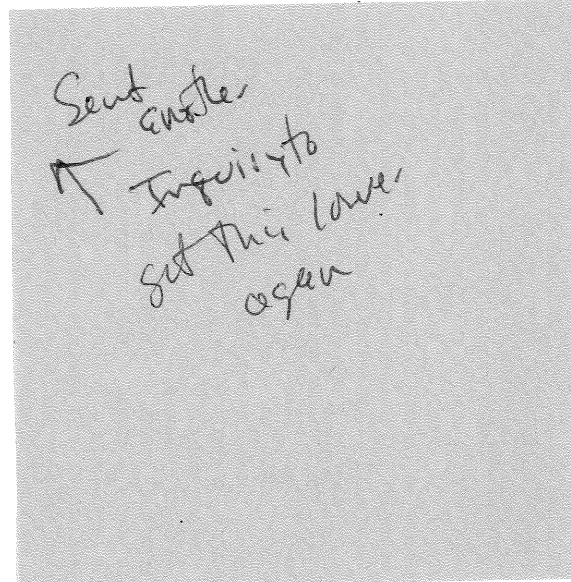 Sent
another
Inquiry to
get this lower
again